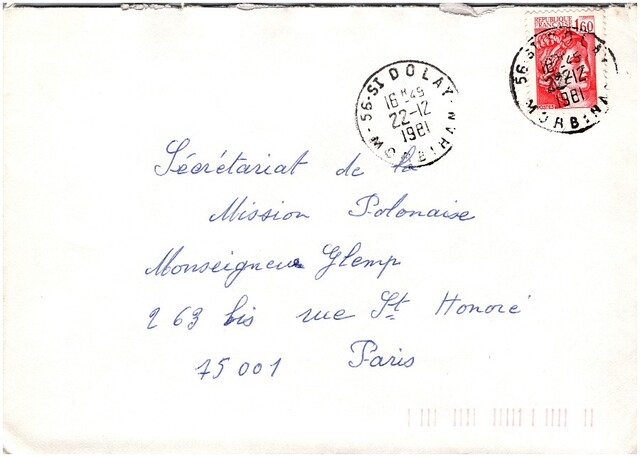 REPUBLIQUE
FRANÇAISE 1,60
56-ST DOLAY
16H45
22-12
1981
MORBIHAN
56-ST DOLAY
16H45
22-12
1981
MORBIHAN
Sécrétariat de la
Mission Polonaise
Monseigneur Glemp
263 bis rue St Honoré
75001 Paris